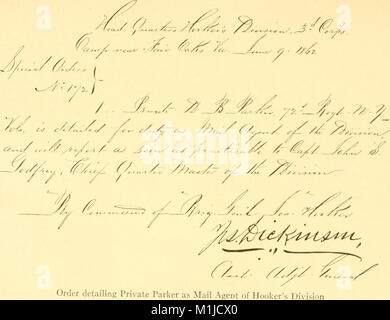 Head Quarters Hooker's Division 3d Corps.
Camp near Fair Oaks Va. June 9. 1862
Special Orders
No. 172
1. Private D B Parker, 72d Regt N Y
Vols, is detailed for duty as Mail Agent of the Division
and will report as soon as practicable to Capt John S.
Godfrey, Chief Quarter Master of the Division
"By Command of "Brig Genl Jos." Hooker
Jos. Dickinson,
Asst. Adjt. General
Order detailing Private Parker as Mail Agent of Hooker's Division
alamy
Image ID: M1JCX0
www.alamy.com